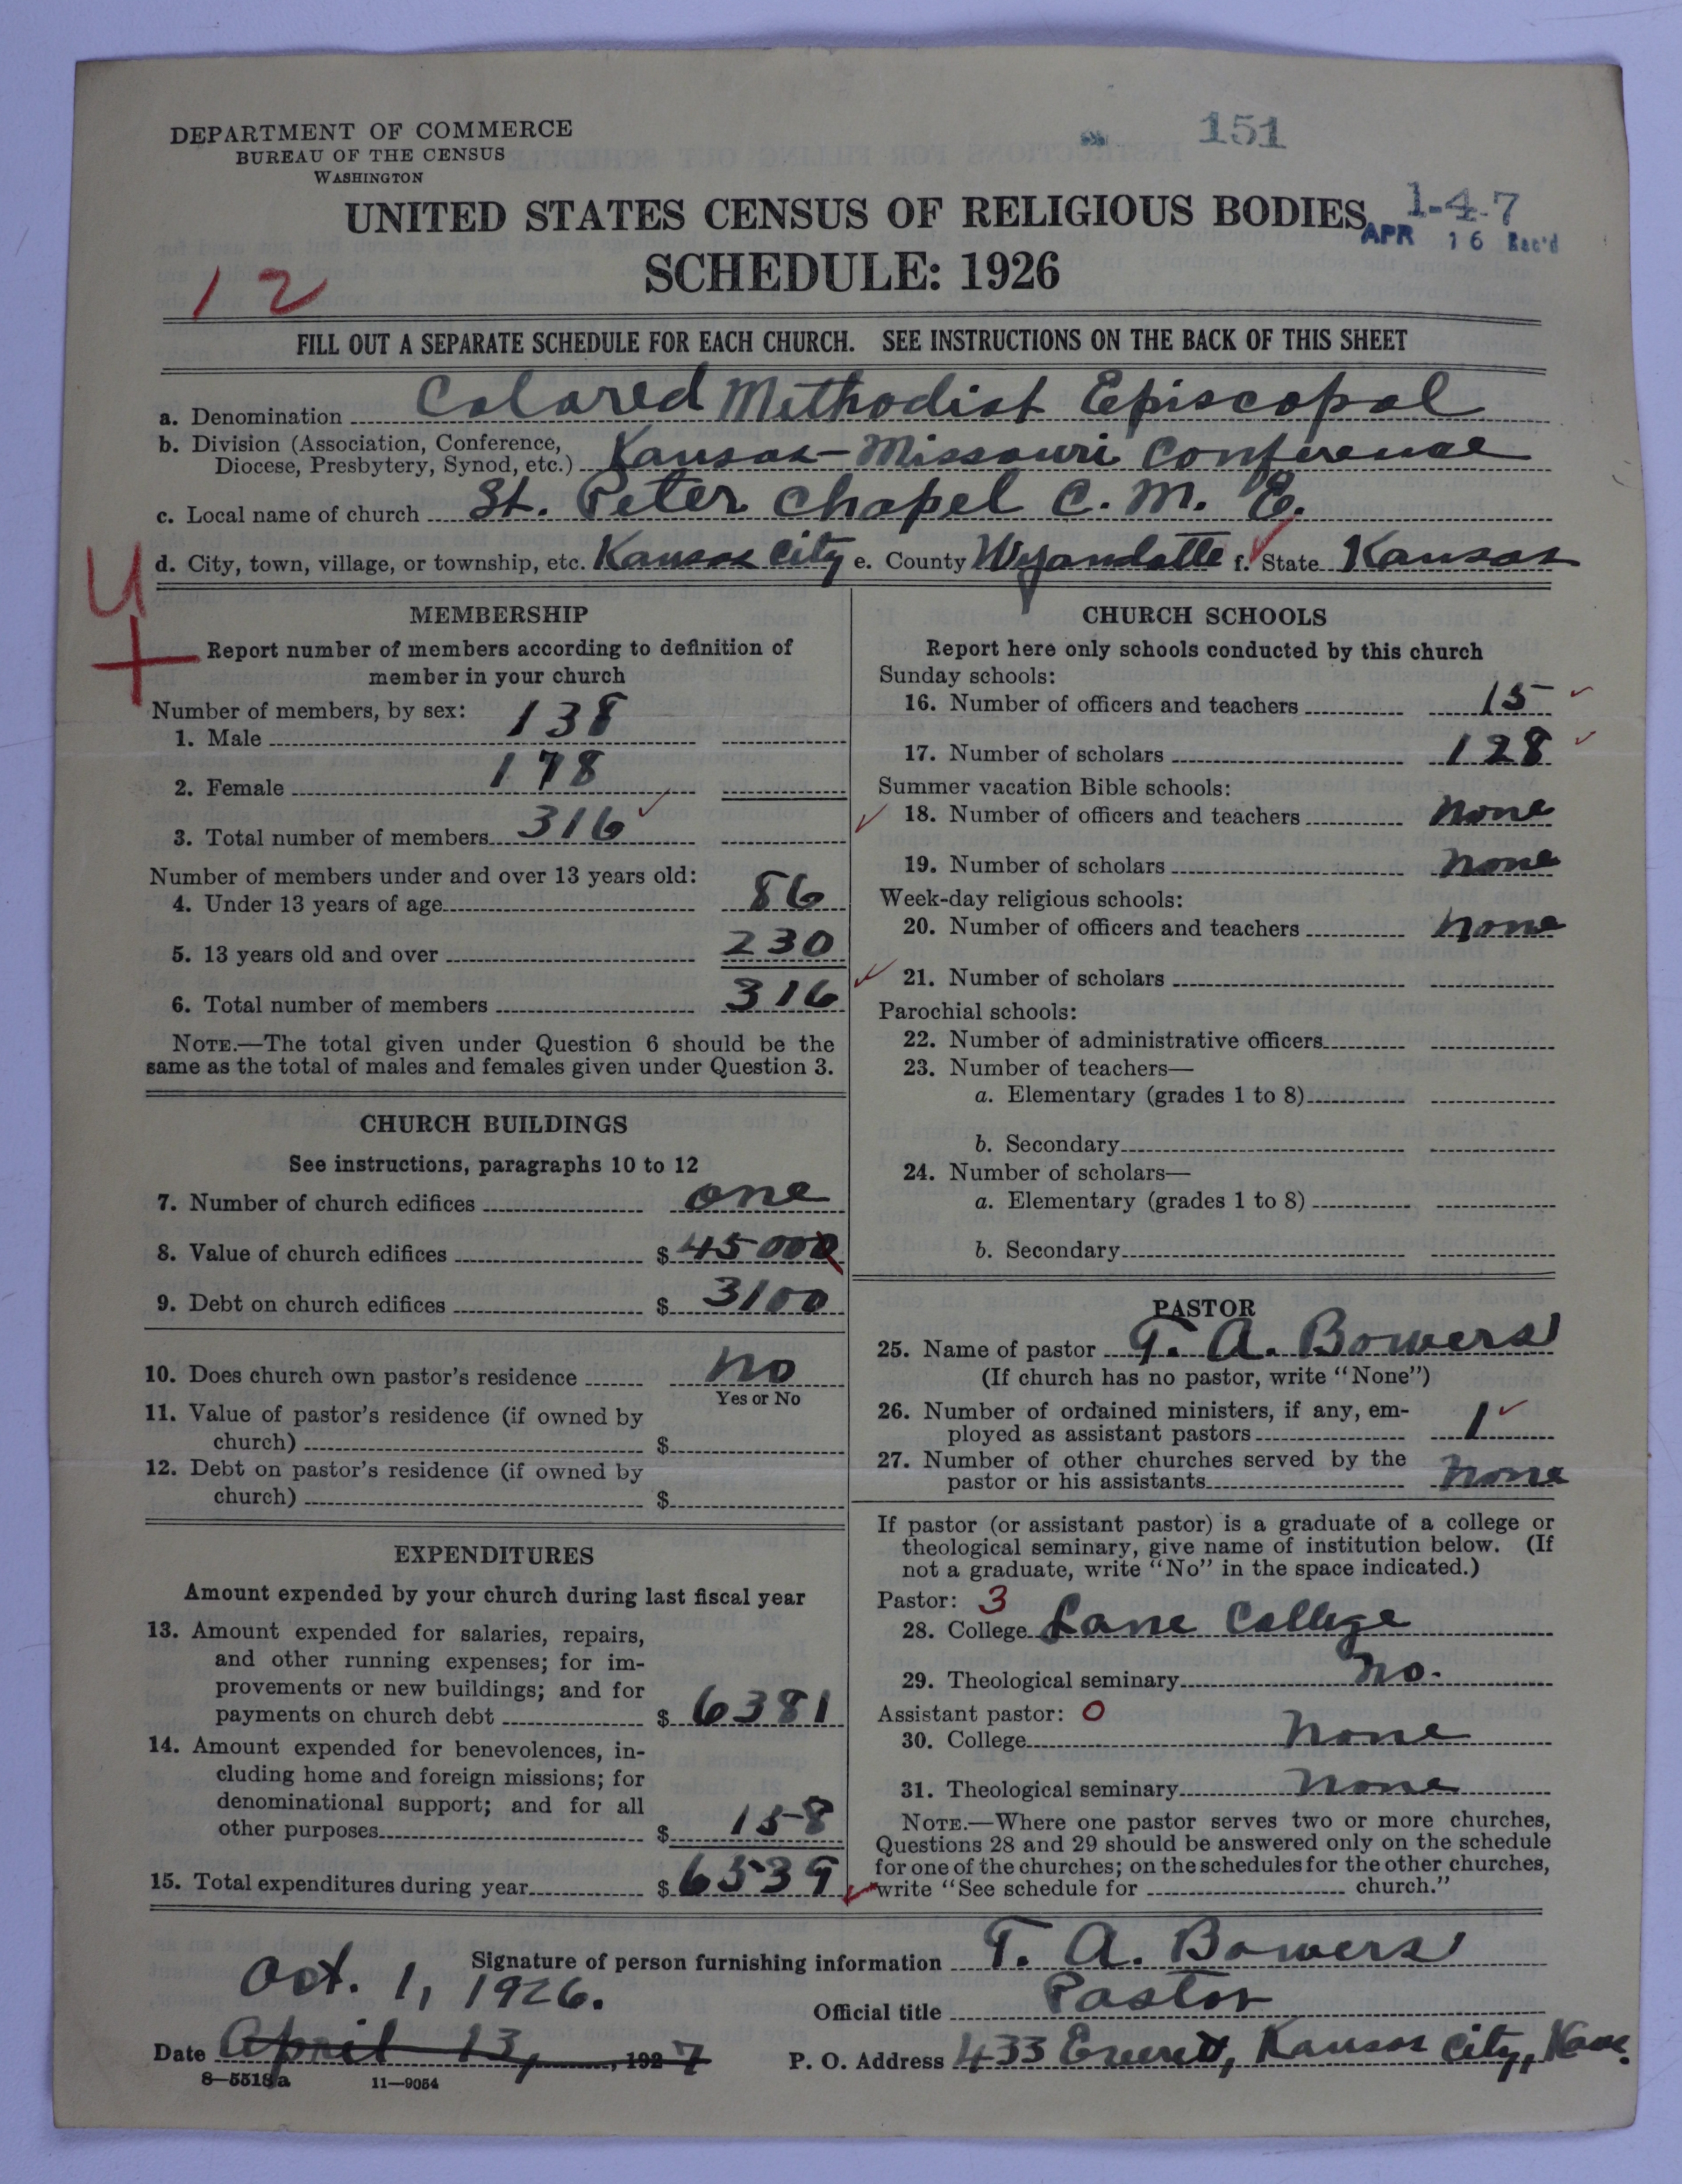 DEPARTMENT OF COMMERCE
BUREAU OF THE CENSUS
WASHINGTON
151
UNITED STATES CENSUS OF RELIGIOUS BODIES
1-4-7
APR 16 Rec'd
SCHEDULE: 1926
12
FILL OUT A SEPARATE SCHEDULE FOR EACH CHURCH. SEE INSTRUCTIONS ON THE BACK OF THIS SHEET
a. Denomination Colored Methodist Episcopal
b. Division (Association, Conference,
Diocese, Presbytery, Synod, etc.) Kansas-Missouri Conference
c. Local name of church St. Peter Chapel C. M. E.
d. City, town, village, or township, etc. Kansas City e. County Wyandotte f. State Kansas
MEMBERSHIP
Report number of members according to definition of
member in your church
Number of members, by sex:
1. Male 138
2. Female 178
3. Total number of members 316
Number of members under and over 13 years old:
4. Under 13 years of age 86
5. 13 years old and over 230
6. Total number of members 316
NOTE.—The total given under Question 6 should be the
same as the total of males and females given under Question 3.
CHURCH BUILDINGS
See instructions, paragraphs 10 to 12
7. Number of church edifices one
8. Value of church edifices $ 45000
9. Debt on church edifices $ 3100
10. Does church own pastor's residence no
Yes or No
11. Value of pastor's residence (if owned by
church) $
12. Debt on pastor's residence (if owned by
church) $
EXPENDITURES
Amount expended by your church during last fiscal year
13. Amount expended for salaries, repairs,
and other running expenses; for im-
provements or new buildings; and for
payments on church debt $ 6381
14. Amount expended for benevolences, in-
cluding home and foreign missions; for
denominational support; and for all
other purposes $ 158
15. Total expenditures during year $ 6539
CHURCH SCHOOLS
Report here only schools conducted by this church
Sunday schools:
16. Number of officers and teachers 15
17. Number of scholars 128
Summer vacation Bible schools:
18. Number of officers and teachers none
19. Number of scholars none
Week-day religious schools:
20. Number of officers and teachers none
21. Number of scholars
Parochial schools:
22. Number of administrative officers
23. Number of teachers—
a. Elementary (grades 1 to 8)
b. Secondary
24. Number of scholars—
a. Elementary (grades 1 to 8)
b. Secondary
PASTOR
25. Name of pastor T. A. Bowers
(If church has no pastor, write "None")
26. Number of ordained ministers, if any, em-
ployed as assistant pastors 1
27. Number of other churches served by the
pastor or his assistants none
If pastor (or assistant pastor) is a graduate of a college or
theological seminary, give name of institution below. (If
not a graduate, write "No" in the space indicated.)
Pastor: 3
28. College Lane College
29. Theological seminary no.
Assistant pastor: 0
30. College none
31. Theological seminary none
NOTE.—Where one pastor serves two or more churches,
Questions 28 and 29 should be answered only on the schedule
for one of the churches; on the schedules for the other churches,
write "See schedule for church."
Signature of person furnishing information T. A. Bowers
Oct. 1, 1926.
Official title Pastor
Date April 13, 1927
P. O. Address 433 Everett, Kansas City, Kans.
8—5518a 11—9054